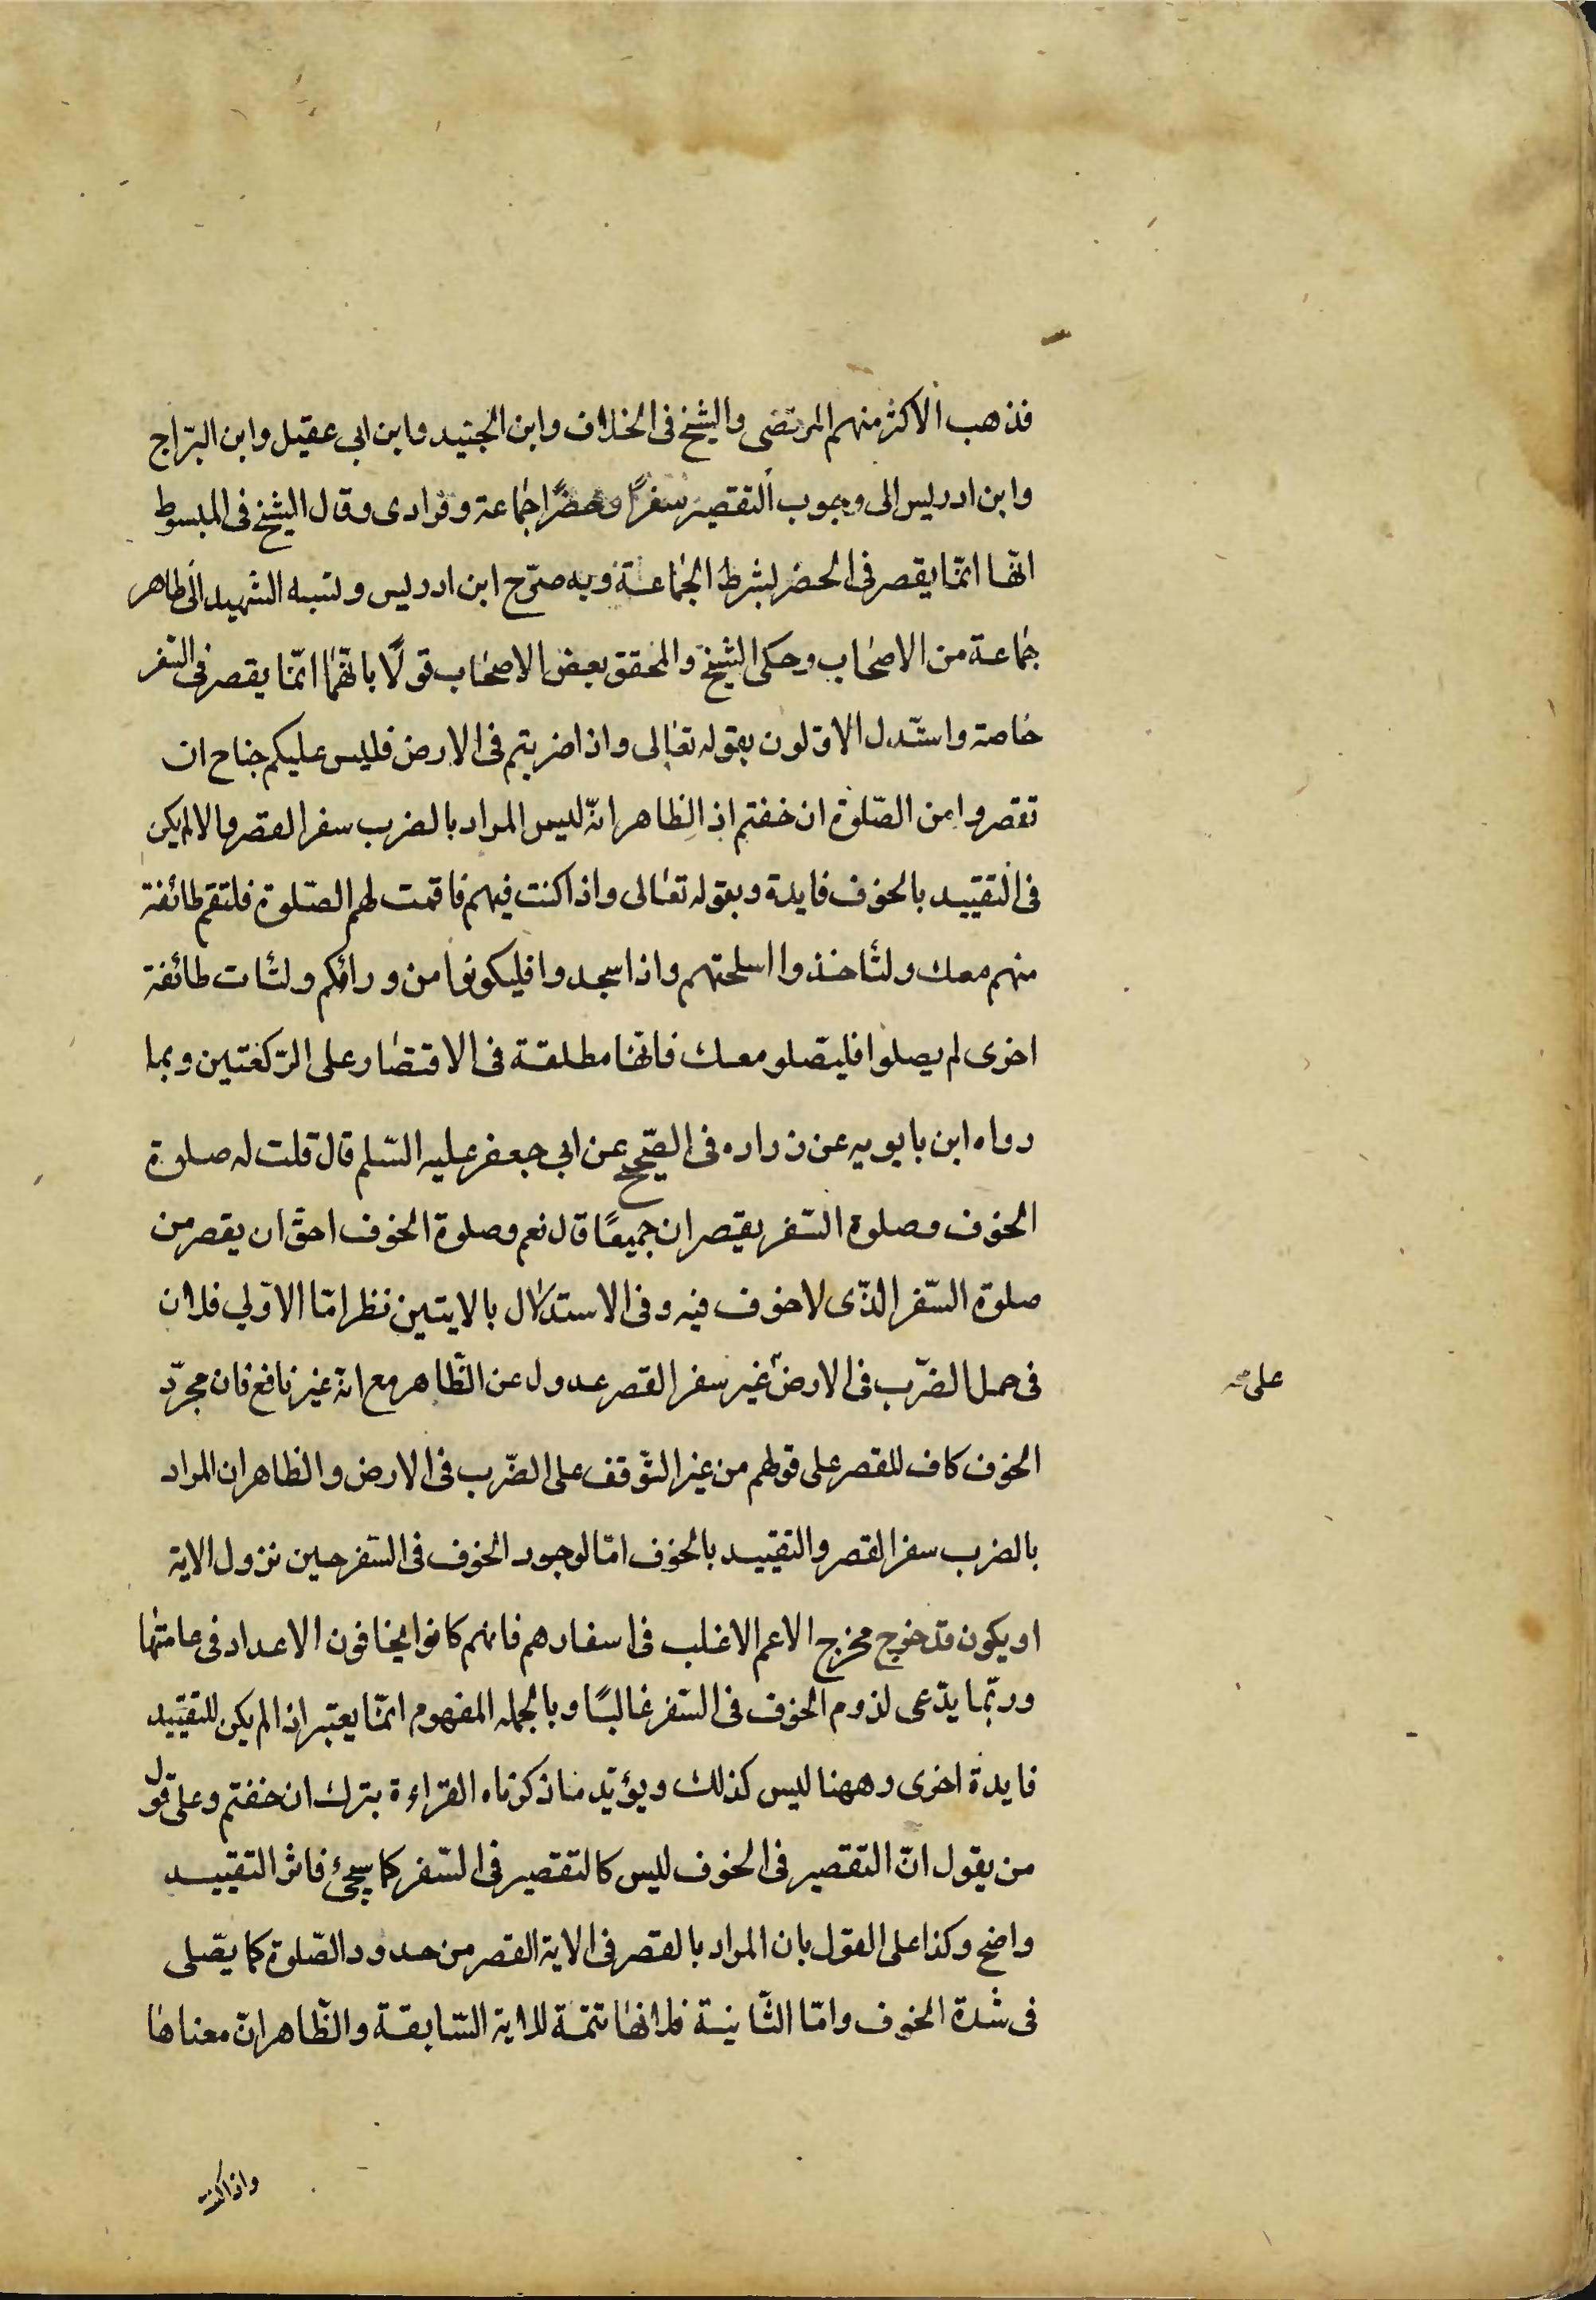 فذهب الاكثر منهم المرتضى والشيخ فى الخلاف وابن الجنيد وابن ابى عقيل وابن البرّاج
وابن ادريس الى وجوب التقصير سفرًا وحضرًا جماعة وفرادى وقال الشيخ فى المبسوط
انّها انّما يقصر فى الحضر بشرط الجماعة وبه صرّح ابن ادريس ونسبه الشهيد الى ظاهر
جماعة من الاصحاب وحكى الشيخ والمحقق بعض الاصحاب قولًا بانّها انّما يقصر فى السّفر
خاصة واستدل الاوّلون بقوله تعالى واذا ضربتم فى الارض فليس عليكم جناح ان
تقصروا من الصّلوة ان خفتم اذ الظاهر انّه ليس المراد بالضرب سفر القصر والا لم يكن
فى التقييد بالخوف فايدة وبقوله تعالى واذا كنت فيهم فاقمت لهم الصّلوة فلتقم طائفة
منهم معك ولتأخذوا اسلحتهم واذا سجدوا فليكونوا من ورائكم ولتأت طائفة
اخرى لم يصلوا فليصّلو معك فانّها مطلقة فى الاقتصار على الرّكعتين وبما
رواه ابن بابويه عن زراره فى الصّحيح عن ابى جعفر عليه السّلم قال قلت له صلوة
الخوف وصلوة السّفر يقصران جميعًا قال نعم وصلوة الخوف احقّ ان يقصر من
صلوة السّفر الذّى لا خوف فيه وفى الاستدلال بالايتين نظر امّا الاوّلى فلان
فى حمل الضّرب فى الارض غير سفر القصر عدول عن الظّاهر مع انّه غير نافع فان مجرّد
على صح
الخوف كاف للقصر على قولهم من غير التّوقف على الضّرب فى الارض والظاهر ان المراد
بالضرب سفر القصر والتقييد بالخوف امّا لوجود الخوف فى السّفر حين نزول الاية
او يكون قد خرج مخرج الاعم الاغلب فى اسفارهم فانهم كانوا يخافون الاعداد فى عامتها
وربّما يدّعى لزوم الخوف فى السّفر غالبًا وبالجمله المفهوم انّما يعتبر اذا لم يكن للتقييد
فايدة اخرى وههنا ليس كذلك ويؤيّد ما ذكرناه القراءة بترك ان خفتم وعلى قول
من يقول انّ التقصير فى الخوف ليس كالتقصير فى السّفر كما سيجئ فاثر التقييد
واضح وكذا على القول بان المراد بالقصر فى الاية القصر من حدود الصّلوة كما يصّلى
فى شدة الخوف وامّا الثّانية فلانها تتمّة للاية السّابقة والظّاهر انّ معناها
واذا كنت